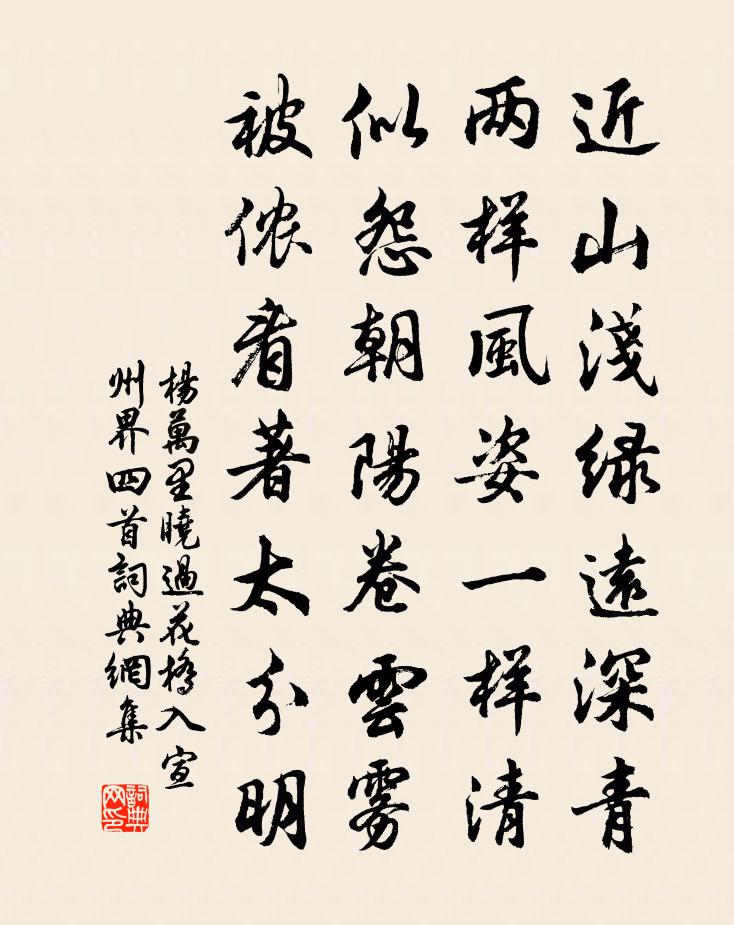 近山淺绿遠深青
两样風姿一样清
似怨朝陽卷雲雾
被侬看著太分明
楊萬里曉過花橋入宣
州界四首詞典網集
詞典
网印